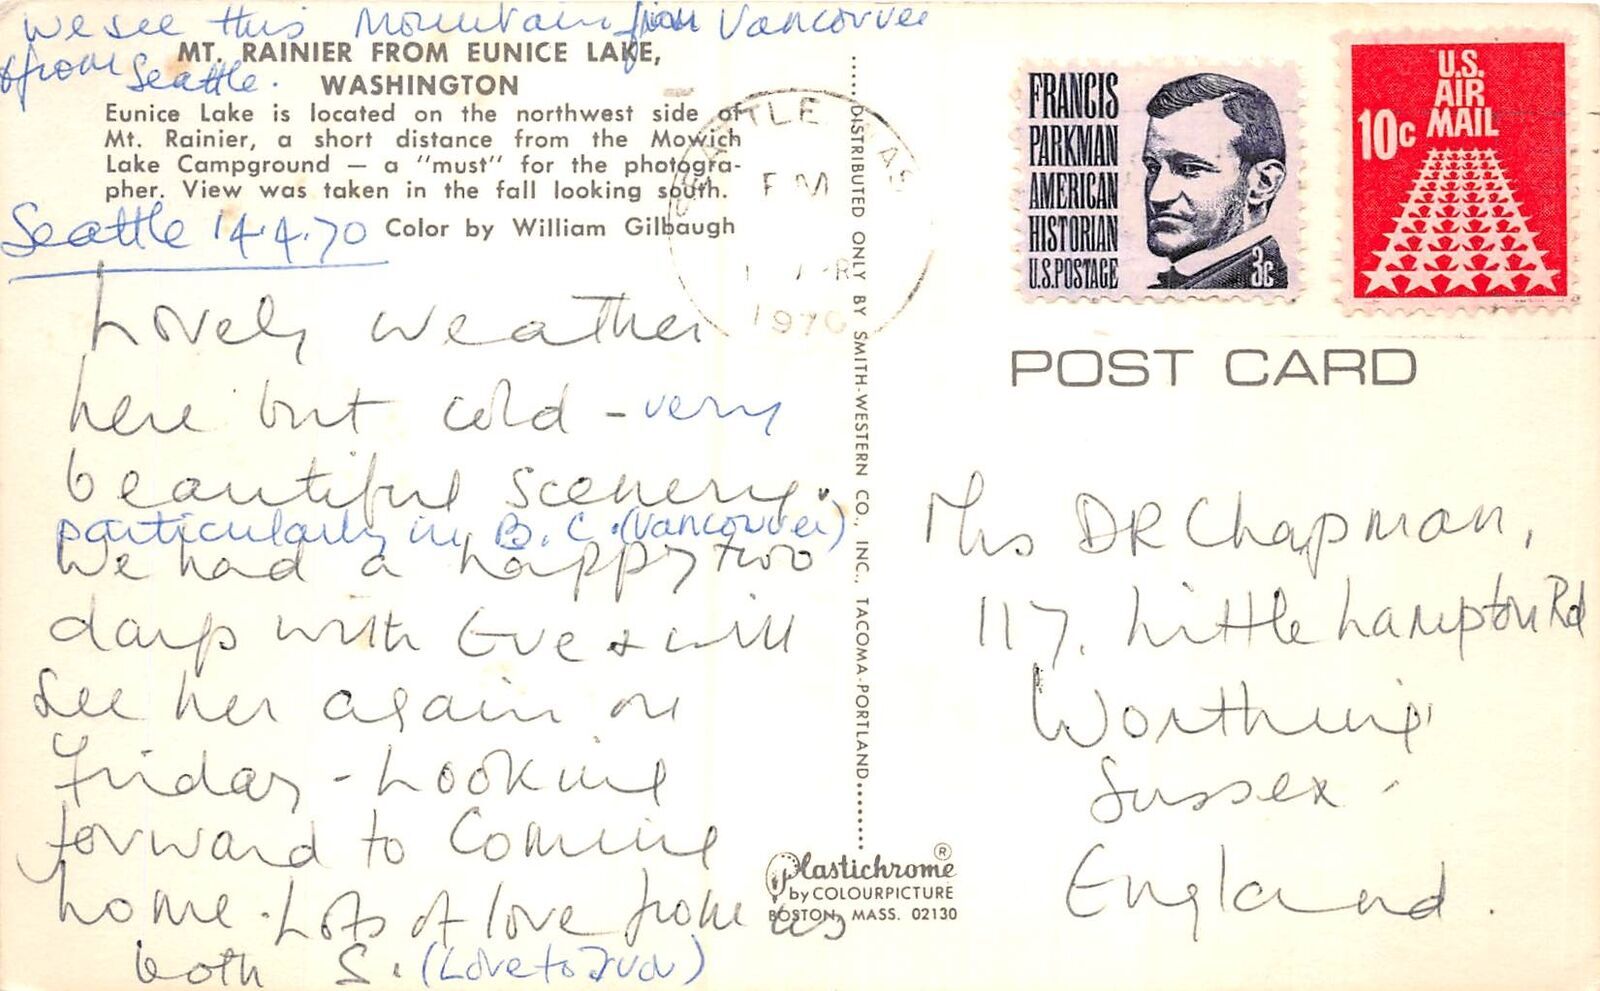 We see this Mountain from Vancouver
& from Seattle.
MT. RAINIER FROM EUNICE LAKE,
WASHINGTON
Eunice Lake is located on the northwest side of
Mt. Rainier, a short distance from the Mowich
Lake Campground — a "must" for the photogra-
pher. View was taken in the fall looking south.
Color by William Gilbaugh
Seattle 14.4.70
Lovely weather
here but cold - very
beautiful scenery.
particularly in B.C. (Vancouver)
We had a happy two
days with Eve & will
see her again on
Friday - Looking
forward to coming
home. Lots of love from us
both S. (Love to Judy)
DISTRIBUTED ONLY BY SMITH-WESTERN CO., INC., TACOMA-PORTLAND
Plastichrome ®
by COLOURPICTURE
BOSTON, MASS. 02130
SEATTLE WAS
PM
APR
1970
FRANCIS
PARKMAN
AMERICAN
HISTORIAN
U.S. POSTAGE
3c
U.S.
AIR
MAIL
10c
POST CARD
Mrs DR Chapman,
117, Littlehampton Rd
Worthing
Sussex -
England.